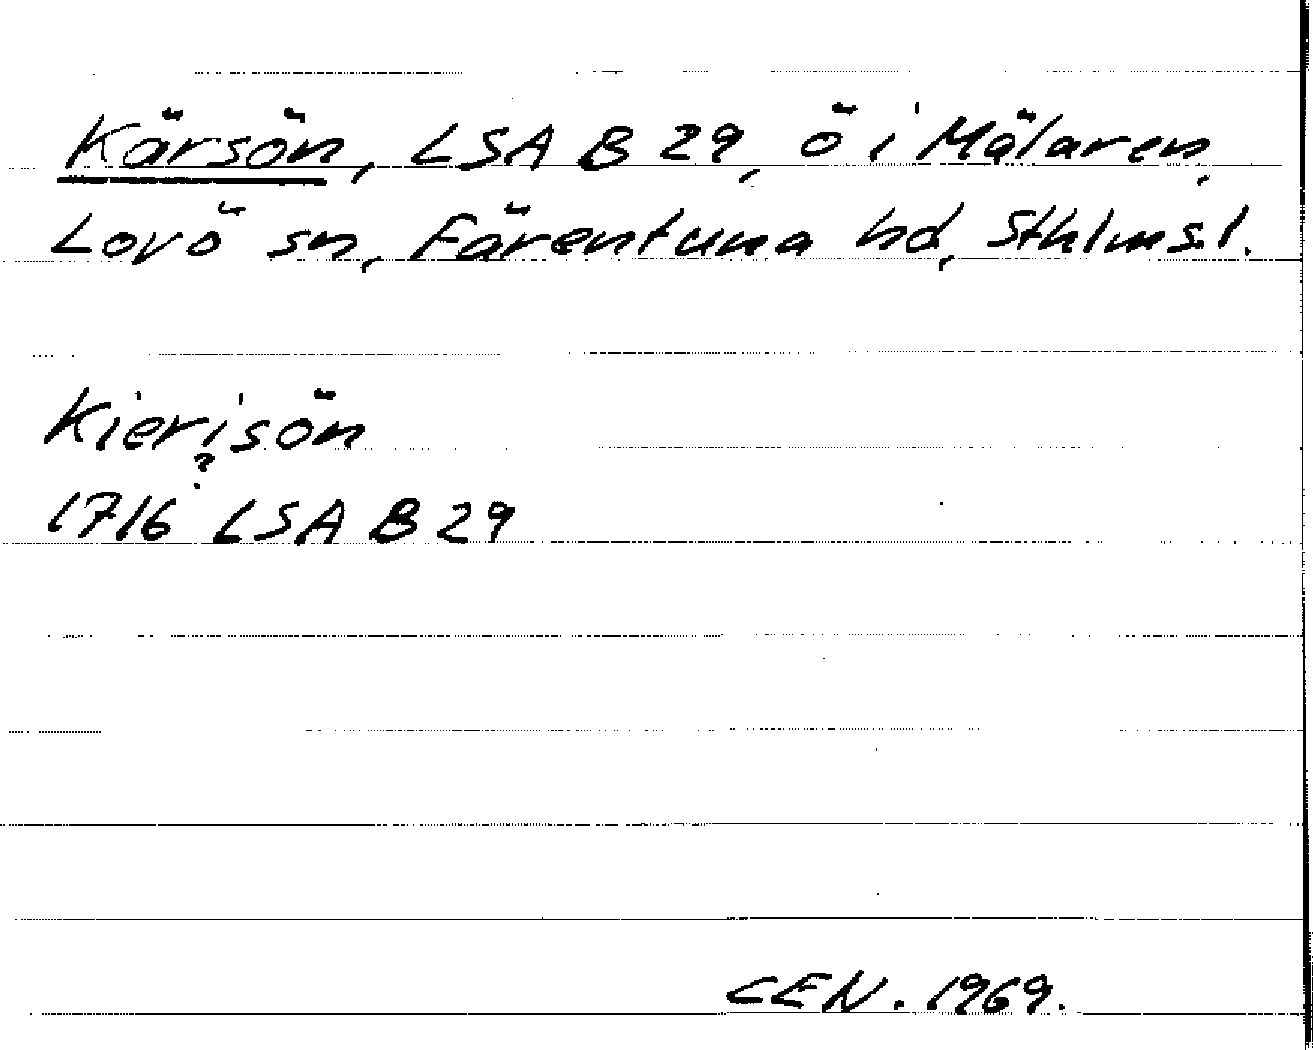 Kärsön, LSA B 29, ö i Mälaren,
Lovö sn, Färentuna hd, Sthlms l.
Kierisön
?
1716 LSA B 29
CEN. 1969.